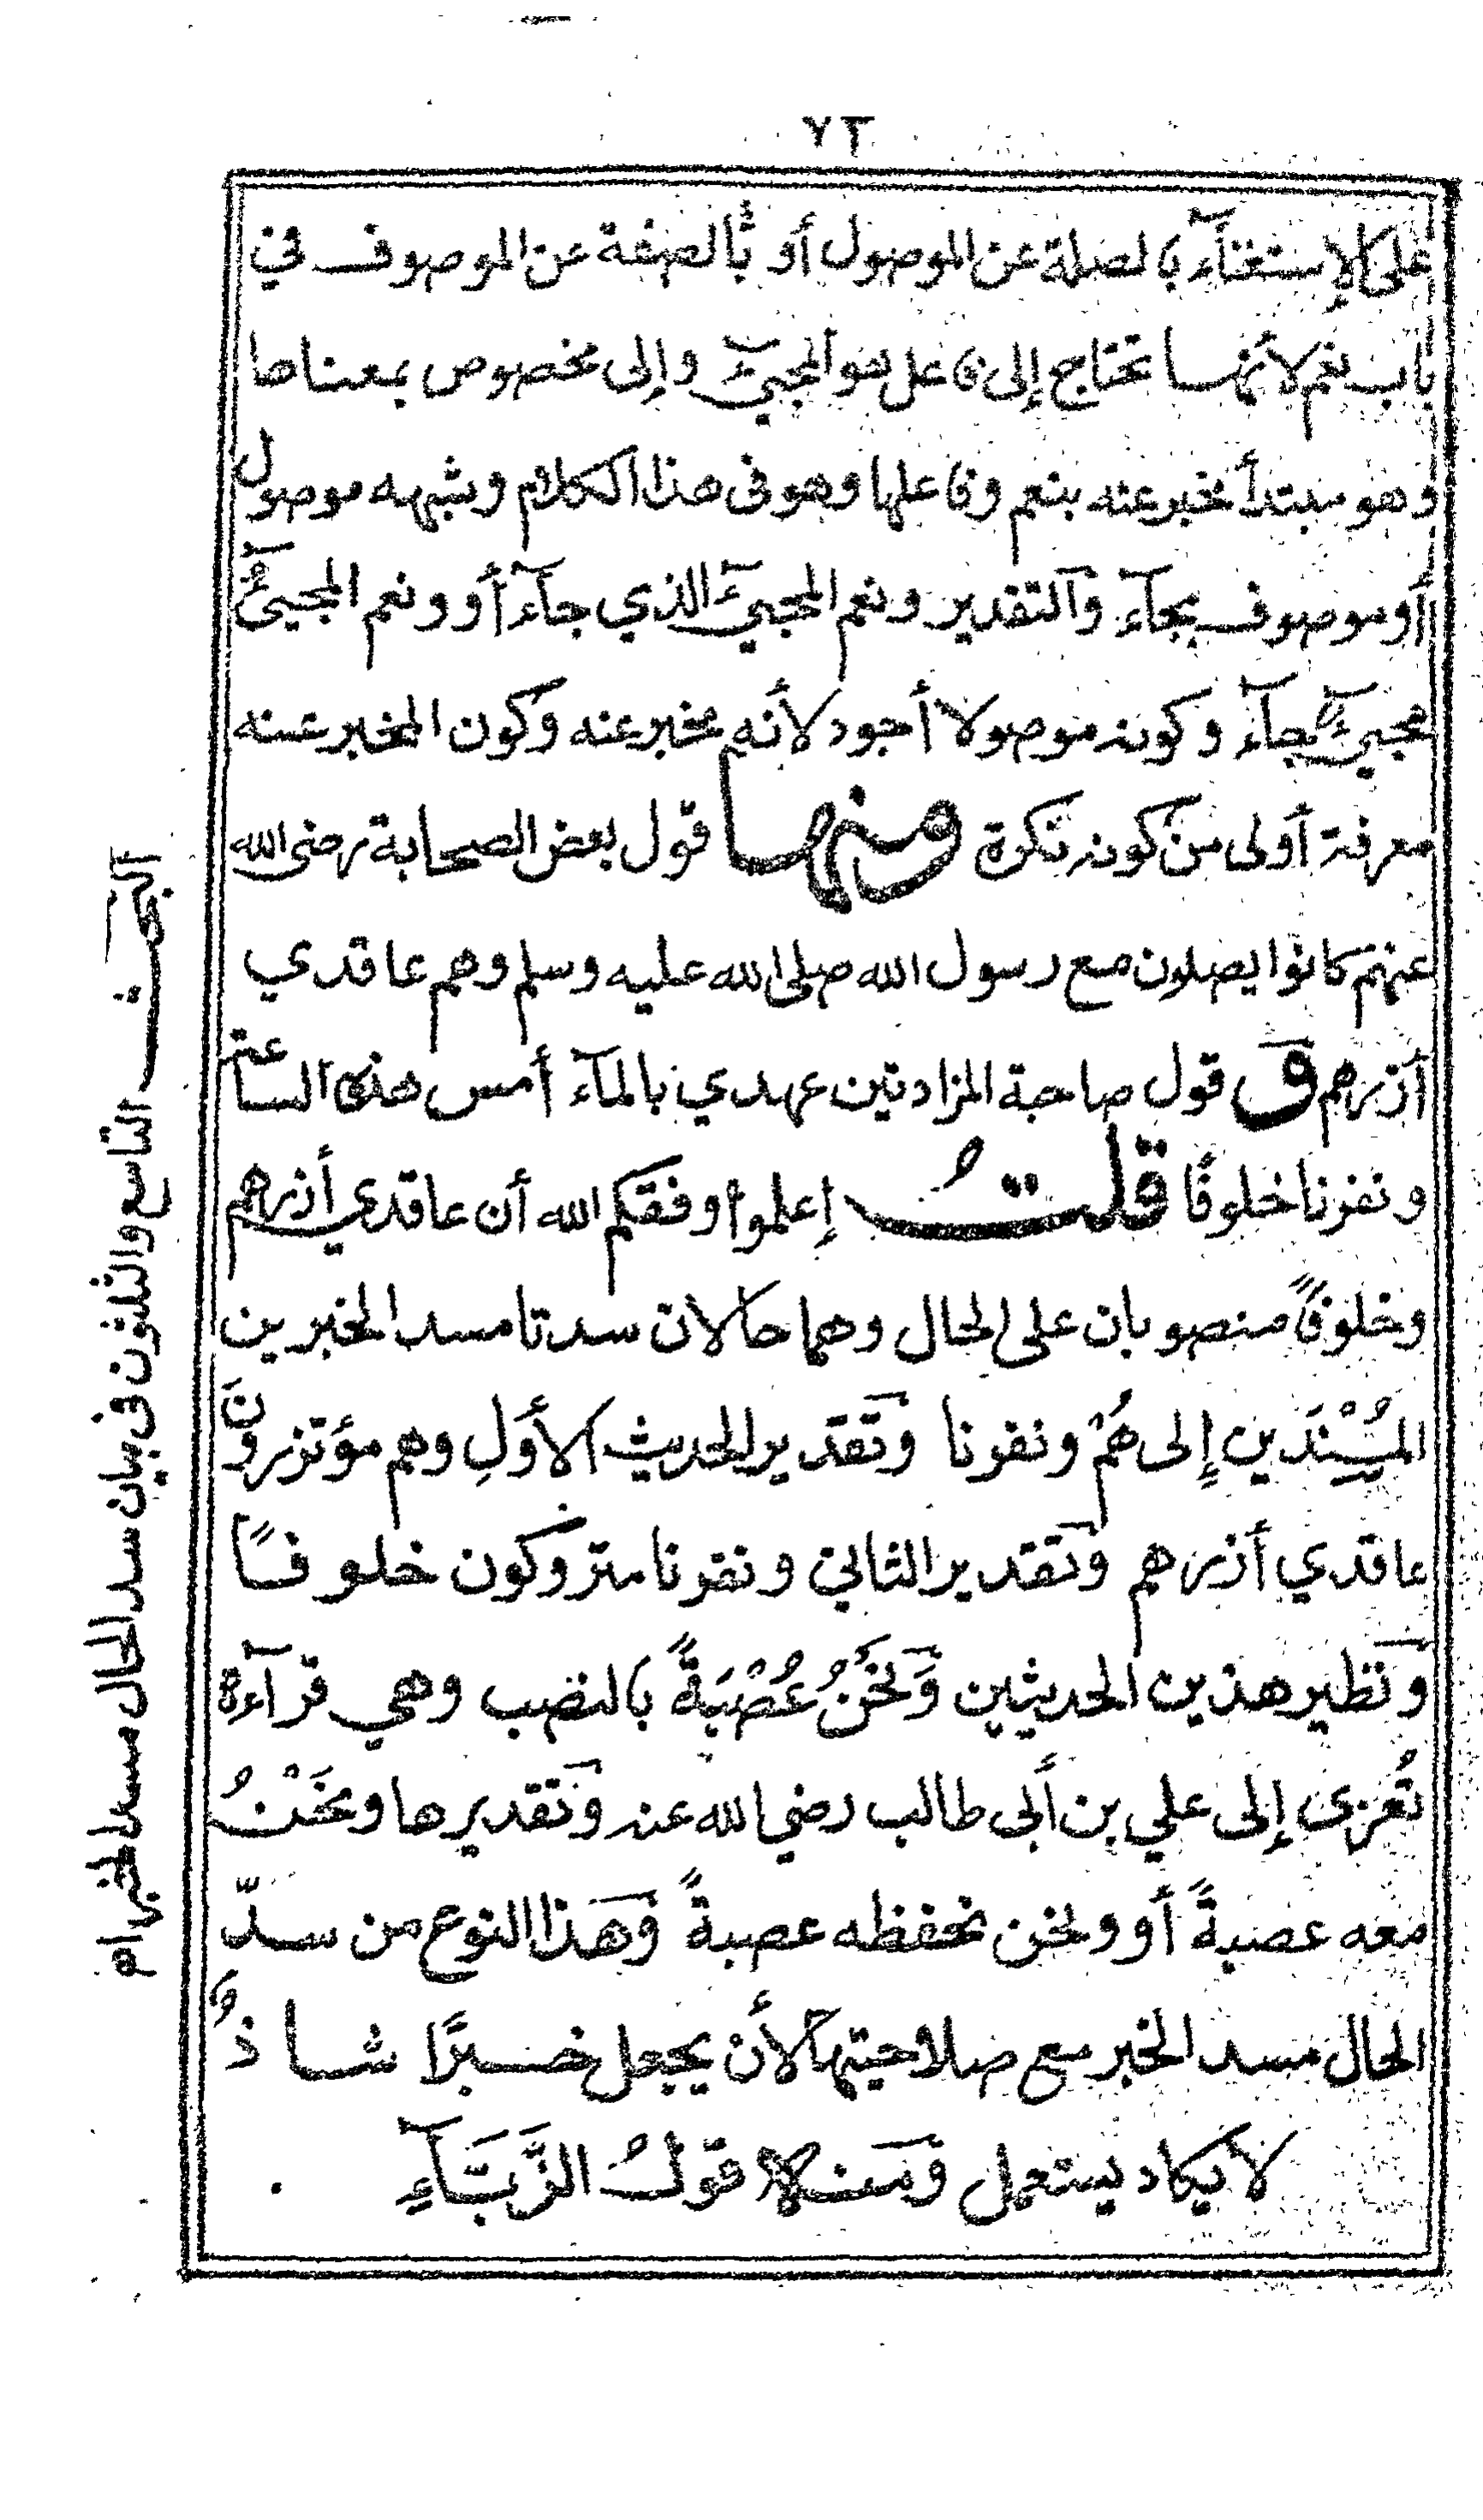 ٧٢
على الإستغنآء بالصلة عن الموصول أو بالصفة عن الموصوف في
باب نعم لأنهـــا تحتاج إلى فاعل هو المجيء وإلى مخصوص بمعناها
وهو مبتدأ مخبر عنه بنعم وفاعلها وهو فى هذا الكلام وشبهه موصول
أو موصوف بجآء وآلتقدير ونعم المجيء الذي جآء أو ونعم المجيئُ
مجيءٌ جآء وكونه موصولا أجود لأنه مخبر عنه وكون المخبر عنه
معرفة أولى من كونه نكرة ومنهــا قول بعض الصحابة رضى الله
عنهم كانوا يصلون مع رسول الله صلى الله عليه وسلم وهم عاقدي
أزرهم وَ قول صاحبة المزادتين عهدي بالمآء أمس هذه الساعة
ونفرنا خلوفًا قلـــتُ إعلموا وفقكم الله أن عاقدي أزرهم
وخلوفًا منصوبان على الحال وهما حالان سدتا مسد الخبرين
المُسْنَدَين إلى هُمْ ونفرنا وتقدير الحديث الأوَلِ وهم مؤتزرونَ
عاقدي أزرهم وتقدير الثاني ونفرنا متروكون خلوفــًا
وَنظير هذين الحديثين وَنَحْنُ عُصْبَةً بالنصب وهي قرآءة
تُعزى إلى علي بن أبى طالب رضي الله عنه وَتقديرها ونَحْنُ
معه عصبةً أو ونحن نحفظه عصبةً وَهذا النوع من سدّ
الحال مسد الخبر مع صلاحيتها لأن يجعل خـــبرًا شــاذٌ
لا يكاد يستعمل وَمنـــه قولُ الزَّبَّآءِ
البحث التاسع والثلثون فى بيان سد الحال مسد الخبر ام